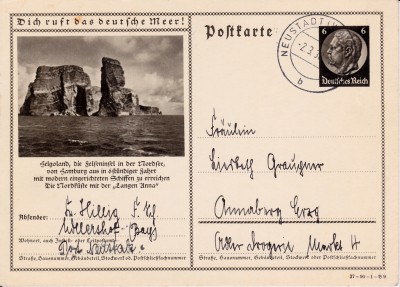 Dich ruft das deutsche Meer!
Helgoland, die Felseninsel in der Nordsee,
von Hamburg aus in 6stündiger Fahrt
mit modern eingerichteten Schiffen zu erreichen
Die Nordküste mit der „Langen Anna"
Absender: Fr. Hillig
Wohnort, auch Zustell- oder Leitpostamt
Straße, Hausnummer, Gebäudeteil, Stockwerk od. Postschließfachnummer
Postkarte
NEUSTADT
b
6 6
Deutsches Reich
Fräulein
Annaberg Erzg
Adler Drogerie Markt 4
Straße, Hausnummer, Gebäudeteil, Stockwerk oder Postschließfachnummer